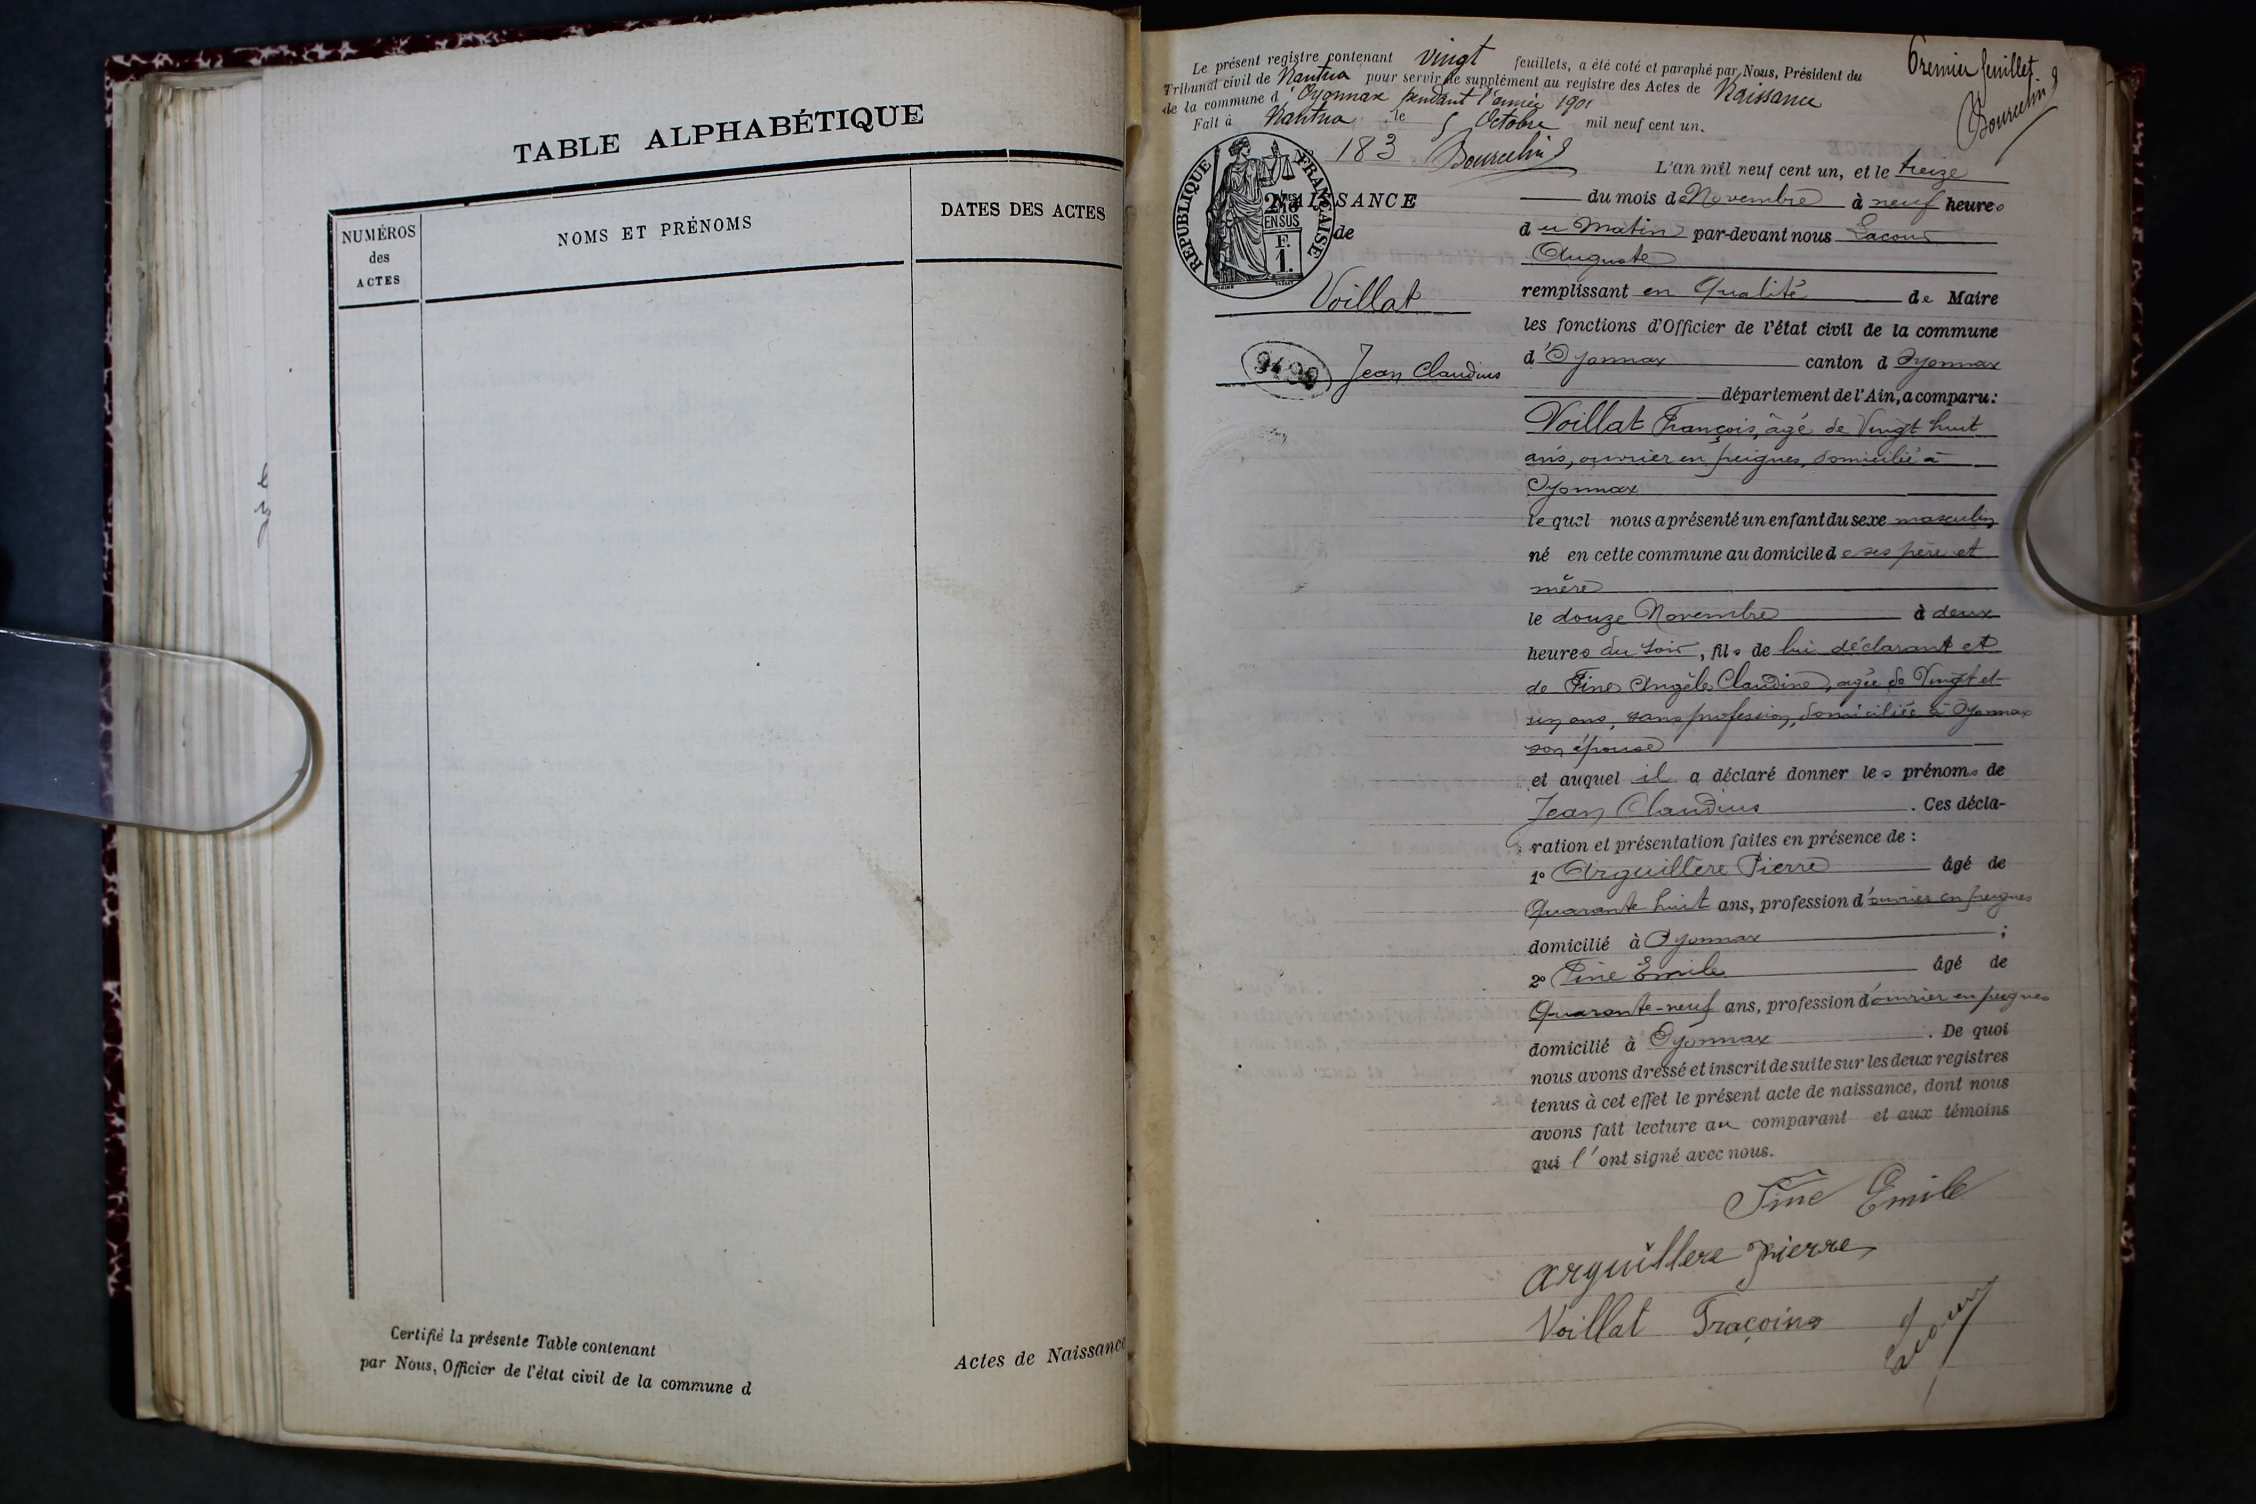 TABLE ALPHABÉTIQUE
NUMÉROS
des
ACTES
NOMS ET PRÉNOMS
DATES DES ACTES
Certifié la présente Table contenant
par Nous, Officier de l'état civil de la commune d
Actes de Naissance
Le présent registre contenant vingt feuillets, a été coté et paraphé par Nous, Président du
Tribunal civil de Nantua pour servir de supplément au registre des Actes de Naissance
de la commune d'Oyonnax pendant l'année 1901
Fait à Nantua, le 5 Octobre mil neuf cent un.
Premier feuillet.
Bourcelin
183
Bourcelin
REPUBLIQUE FRANÇAISE
EN SUS
F.
1.
NAISSANCE
de
Voillat
Jean Claudius
L'an mil neuf cent un, et le treize
du mois de Novembre à neuf heures
du Matin par-devant nous Lacour
Auguste
remplissant en Qualité de Maire
les fonctions d'Officier de l'état civil de la commune
d'Oyonnax canton d Oyonnax
département de l'Ain, a comparu :
Voillat François, âgé de Vingt huit
ans, ouvrier en peignes, domicilié à
Oyonnax
lequel nous a présenté un enfant du sexe masculin
né en cette commune au domicile de ses père et
mère
le douze Novembre à deux
heures du soir, fils de lui déclarant et
de Fine Angèle Claudine, agée de Vingt et
un ans, sans profession, domiciliée à Oyonnax
son épouse
et auquel il a déclaré donner les prénoms de
Jean Claudius. Ces décla-
ration et présentation faites en présence de :
1° Arguillère Pierre âgé de
Quarante huit ans, profession d'ouvrier en peignes
domicilié à Oyonnax ;
2° Fine Emile âgé de
Quarante-neuf ans, profession d'ouvrier en peignes
domicilié à Oyonnax. De quoi
nous avons dressé et inscrit de suite sur les deux registres
tenus à cet effet le présent acte de naissance, dont nous
avons fait lecture au comparant et aux témoins
qui l'ont signé avec nous.
Fine Emile
arguillere pierre
Voillat Fraçoins
Lacour